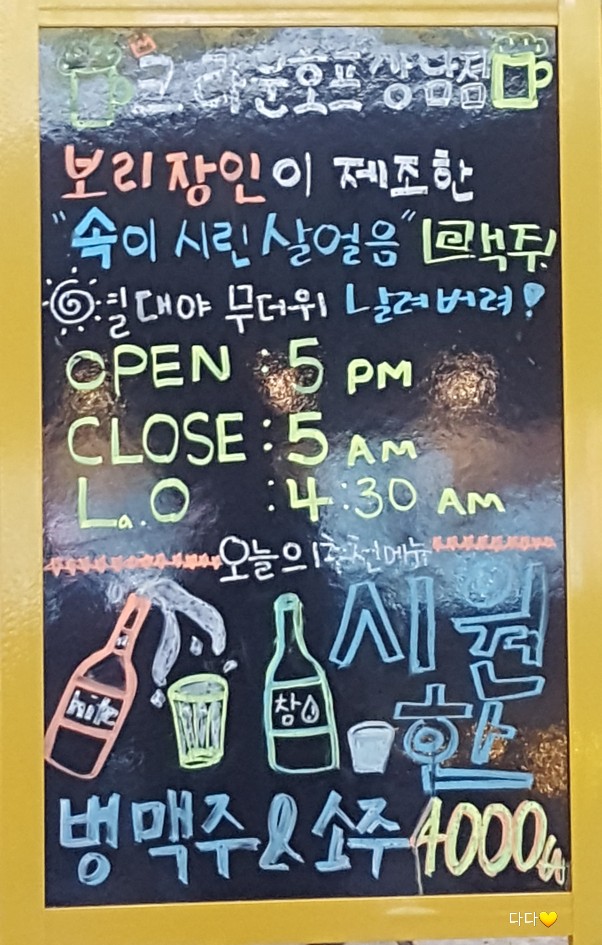 크라운호프 상남점
보리장인이 제조한
"속이 시린 살얼음" 맥주!
열대야 무더위 날려버려!
OPEN : 5 PM
CLOSE : 5 AM
La.O : 4:30 AM
오늘의 추천메뉴
hite
참
시원
한
병맥주 & 소주 4000
다다💛